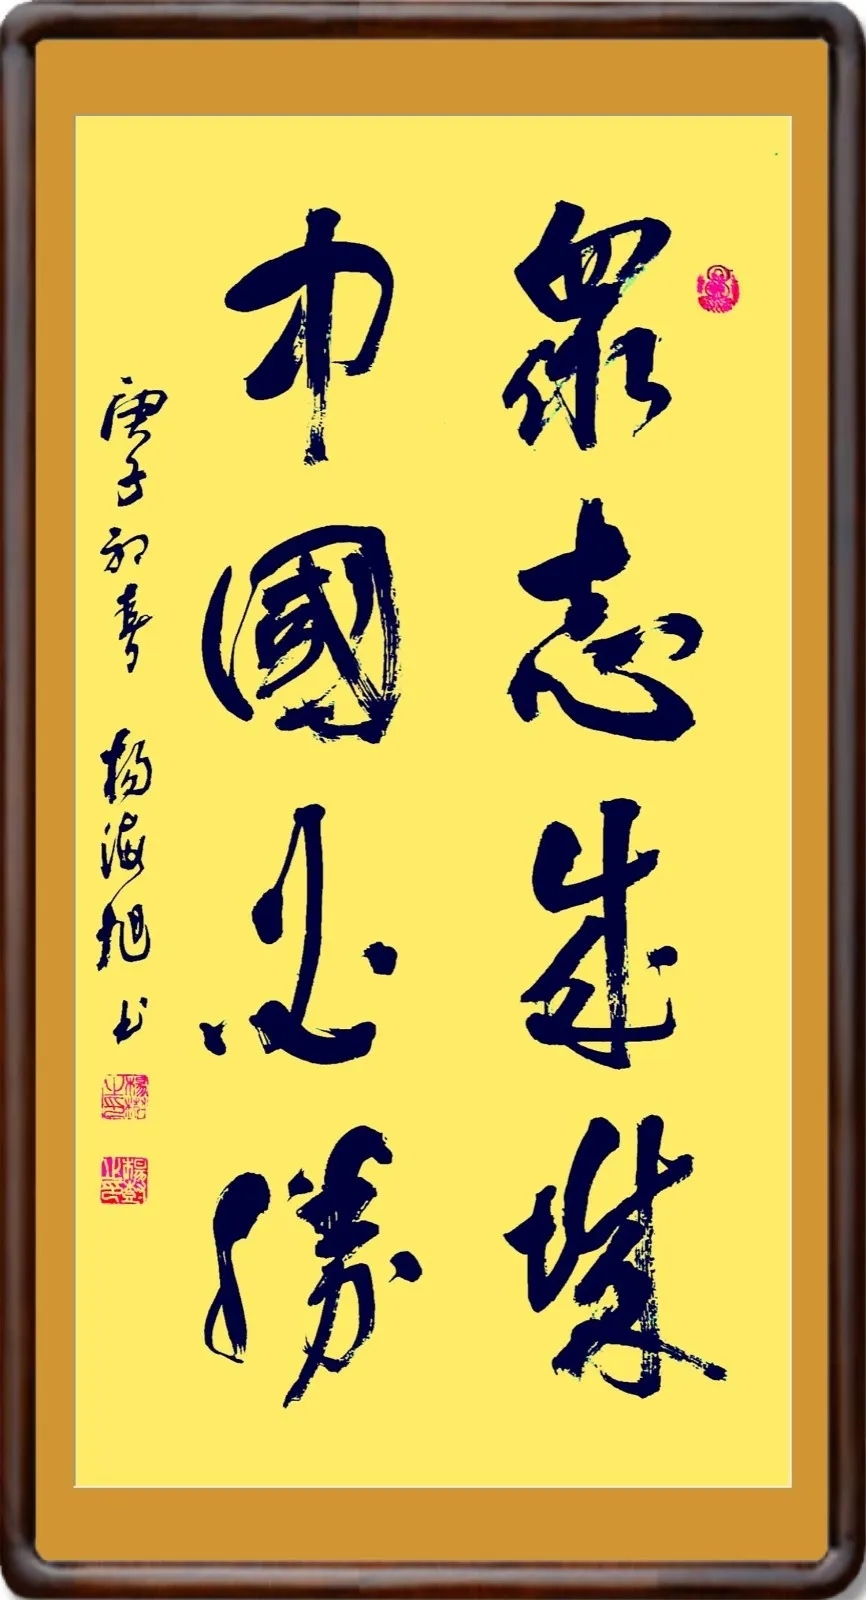 眾志成城
中國必勝
庚子初春 楊海旭书